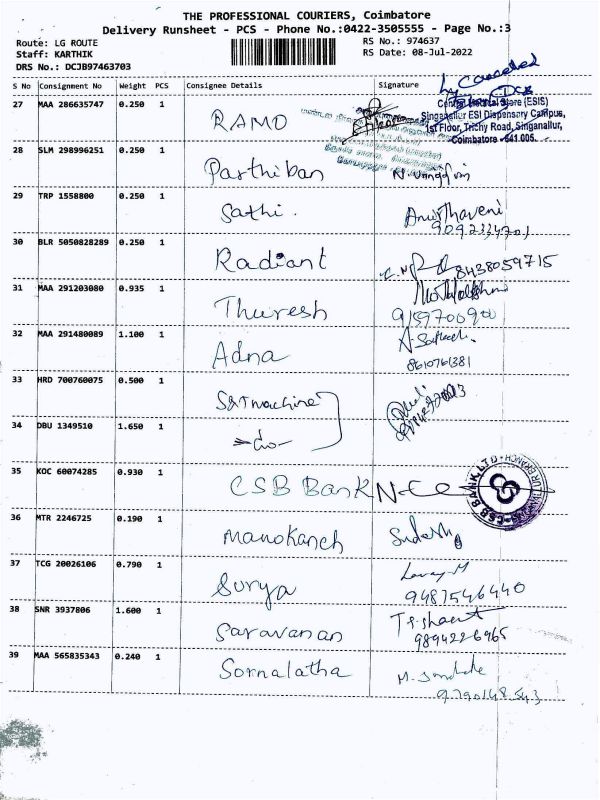 THE PROFESSIONAL COURIERS, Coimbatore
Delivery Runsheet - PCS - Phone No.:0422-3505555 - Page No.:3
Route: LG ROUTE
RS No.: 974637
Staff: KARTHIK
RS Date: 08-Jul-2022
DRS No.: DCJB97463703
Cancelled
S No Consignment No Weight PCS Consignee Details Signature
27 MAA 286635747 0.250 1 RAMO
Central Medical Store (ESIS)
Singanallur ESI Dispensary Campus,
1st Floor, Trichy Road, Singanallur,
Coimbatore - 641 005.
28 SLM 298996251 0.250 1 Parthiban
29 TRP 1558800 0.250 1 Sathi.
30 BLR 5050828289 0.250 1 Radiant 8438059715
31 MAA 291203080 0.935 1 Thuresh
9159700900
32 MAA 291480089 1.100 1 Adna
8610761381
33 HRD 700760075 0.500 1 S&T machine
34 DBU 1349510 1.650 1 -do-
35 KOC 60074285 0.930 1 CSB Bank
CSB BANK LTD
36 MTR 2246725 0.190 1 Manokanch
37 TCG 20026106 0.790 1 Surya
9487546440
38 SNR 3937806 1.600 1 Saravanan
9894226965
39 MAA 565835343 0.240 1 Sornalatha
9790148543